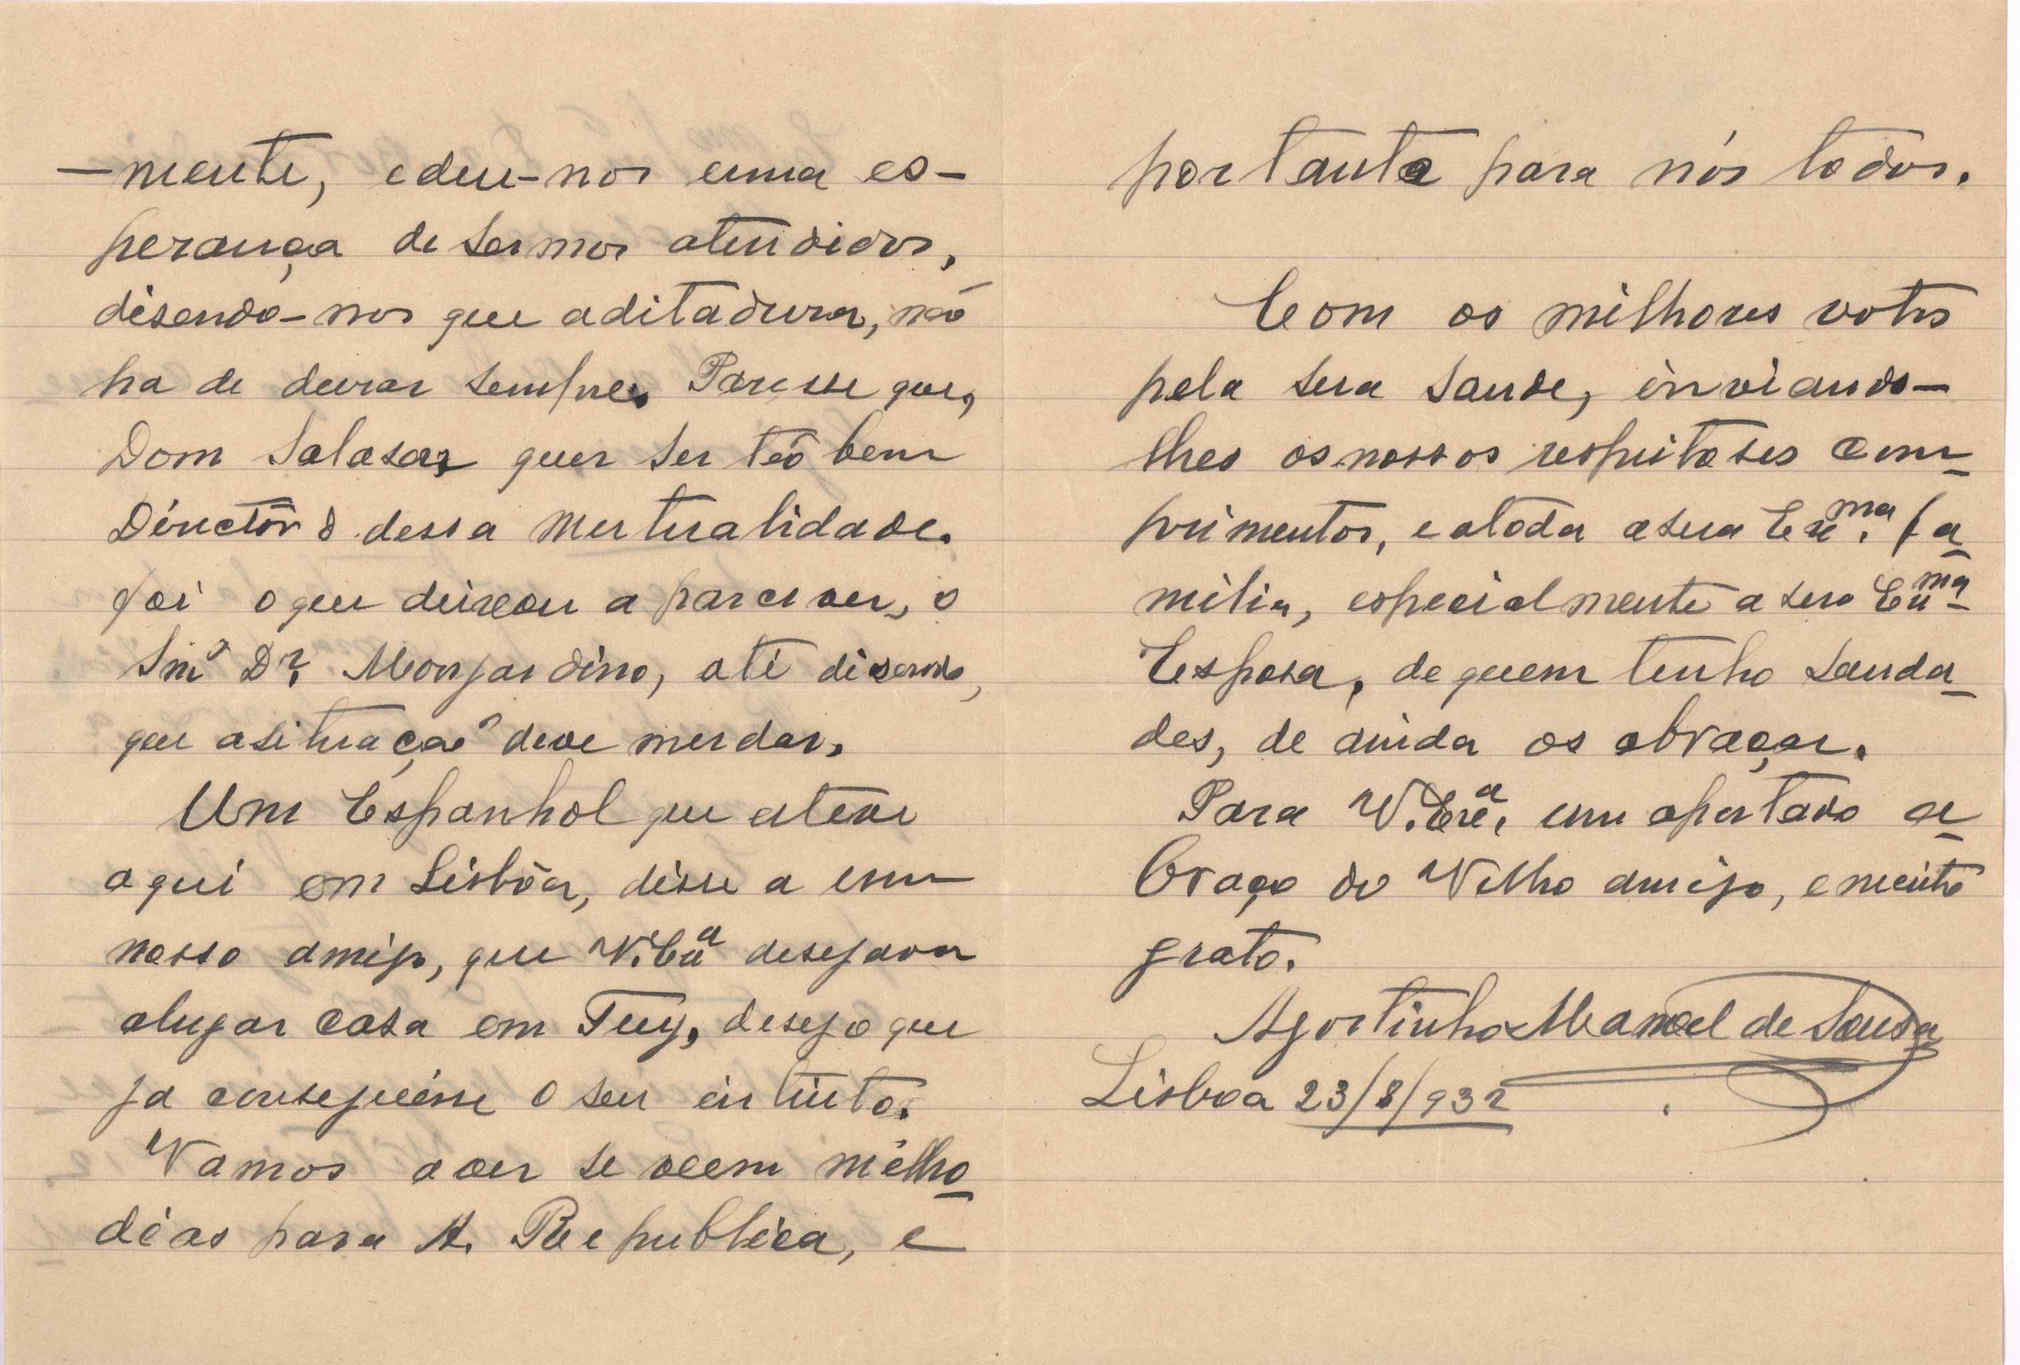 -mente, e deu-nos uma es-
perança de sermos atendidos,
disendo-nos que a ditadura, não
ha de durar sempre. Paresse que,
Dom Salasar, quer ser tão bem
Dirictôr d dessa Mutualidade.
foi o que deixou a parcever, o
Snr Dr. Monjardino, até disendo,
que a situação deve mudar.
Um Espanhol que esteve
aqui em Lisbôa, disse a um
nosso amigo, que V. Exª desejava
alugar casa em Tuy, desejo que
ja conseguisse o seu intiuto.
Vamos a ver se veem milho
dias para A. Republica, e
portanto para nós todos.
Com os milhores votos
pela sua saude, inviando-
lhes os nossos respeitosos com-
primentos, e a toda a sua Exma. fa-
milia, especialmente a sua Exma
Esposa, de quem tenho sauda-
des, de ainda os abraçar.
Para V. Exª, um apertado a-
braço do Velho amigo, e muito
grato.
Agostinho Manoel de Sousa
Lisboa 23/8/932